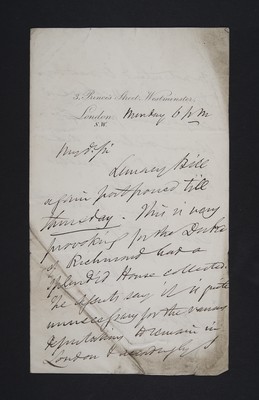 3, Prince's Street, Westminster,
London, Monday 6 p m
S.W.
My Dr Sir
Lunacy Bill
again postponed till
Thursday. This is very
provoking for the Duke
of Richmond had a
splendid House collected.
The agents say it is quite
unnecessary for the various
deputations to remain in
London & accordingly I